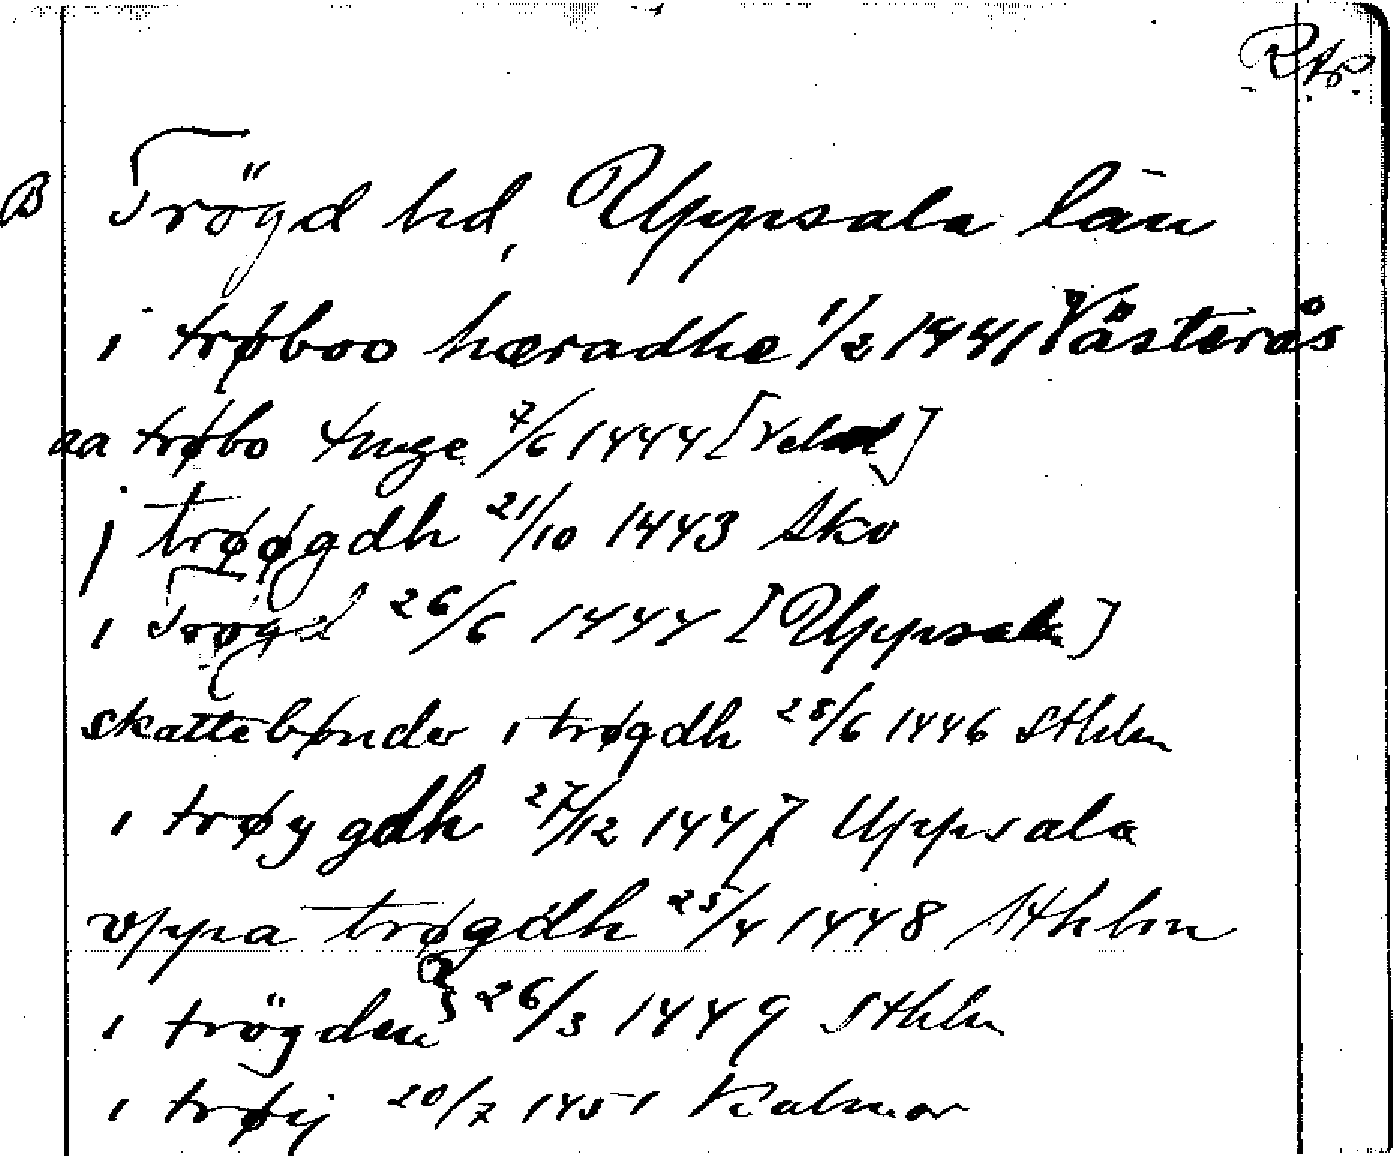 RAp
B Trögd hd, Uppsala län
i trøboo hæradhe 1/2 1441 Västerås
aa trøbo tinge 7/6 1444
j trøøgdh 21/10 1443 Sko
i Trøgd 26/6 1444 [Uppsala]
skattebønder i trøgdh 28/6 1446 Sthlm
i trøygdh 27/12 1447 Uppsala
vppa trøgdh 25/4 1448 Sthlm
i trögden 26/3 1449 Sthlm
i trøij 20/7 1451 Kalmar